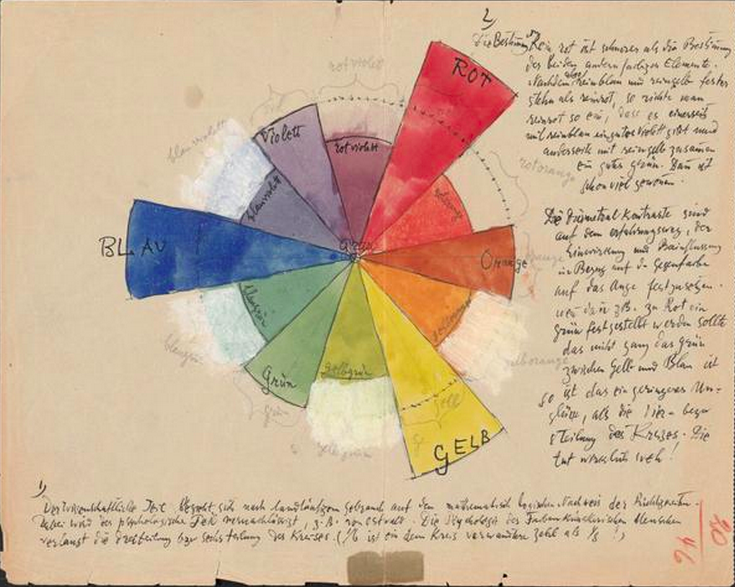 2)
Die Bestimmung Rein rot ist schwerer als die Bestimmung
der beiden andern farbigen Elemente.
Nachdem aber reinblau und reingelb fester
stehn als reinrot, so richte man
reinrot so ein, dass es einerseits
mit reinblau ein gutes violett gibt und
anderseits mit reingelb zusammen
ein gutes grün. Dann ist
schon viel gewonnen.
Die Diametral Kontraste sind
auf dem erfahrungsweg, der
Einwirkung und Beeinflussung
in Bezug auf die Gegenfarbe
auf das Auge festzusetzen.
wenn dann z.B. zu Rot ein
grün festgestellt werden sollte
das nicht ganz das grün
zwischen Gelb und Blau ist
so ist das ein geringeres Un-
glück, als die
teilung des Kreises. Die
tut wirklich weh!
rotviolett
ROT
Violett
rotviolett
blauviolett
blauviolett
rotorange
BLAU
Grau
Orange
orange
blaugrün
blaugrün
gelborange
gelborange
Grün
grün
gelbgrün
gelbgrün
gelb
GELB
1)
Der wissenschaftliche Teil bezieht sich nach landläufigem gebrauch auf den mathematisch logischen Nachweis der Richtigkeiten.
Dabei wird der psychologische Teil vernachlässigt, z.B. von Ostwald. Die Psychologie des Farbenkünstlerischen Menschen
verlangt die dreiteilung bzw sechsteilung des Kreises. ist ein dem Kreis verwandtere Zahl als